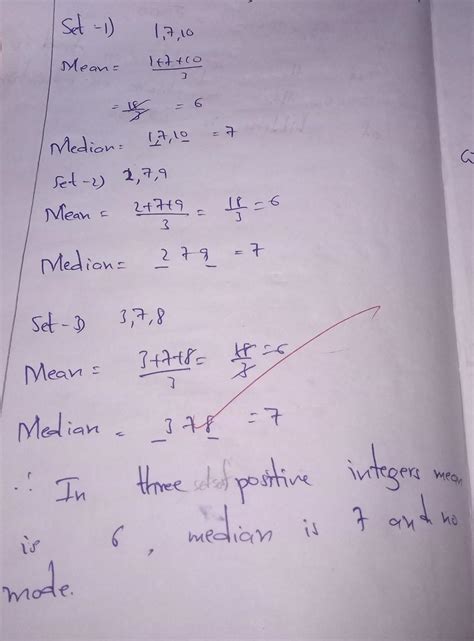 Set-1) 1,7,10
Mean = 1+7+10/3
= 18/3 = 6
Median = 1,7,10 = 7
Set-2) 2,7,9
Mean = 2+7+9/3 = 18/3 = 6
Median = 2 7 9 = 7
Set-3) 3,7,8
Mean = 3+7+8/3 = 18/3 = 6
Median = 3 7 8 = 7
∴ In three sets of positive integers mean
is 6, median is 7 and no
mode.